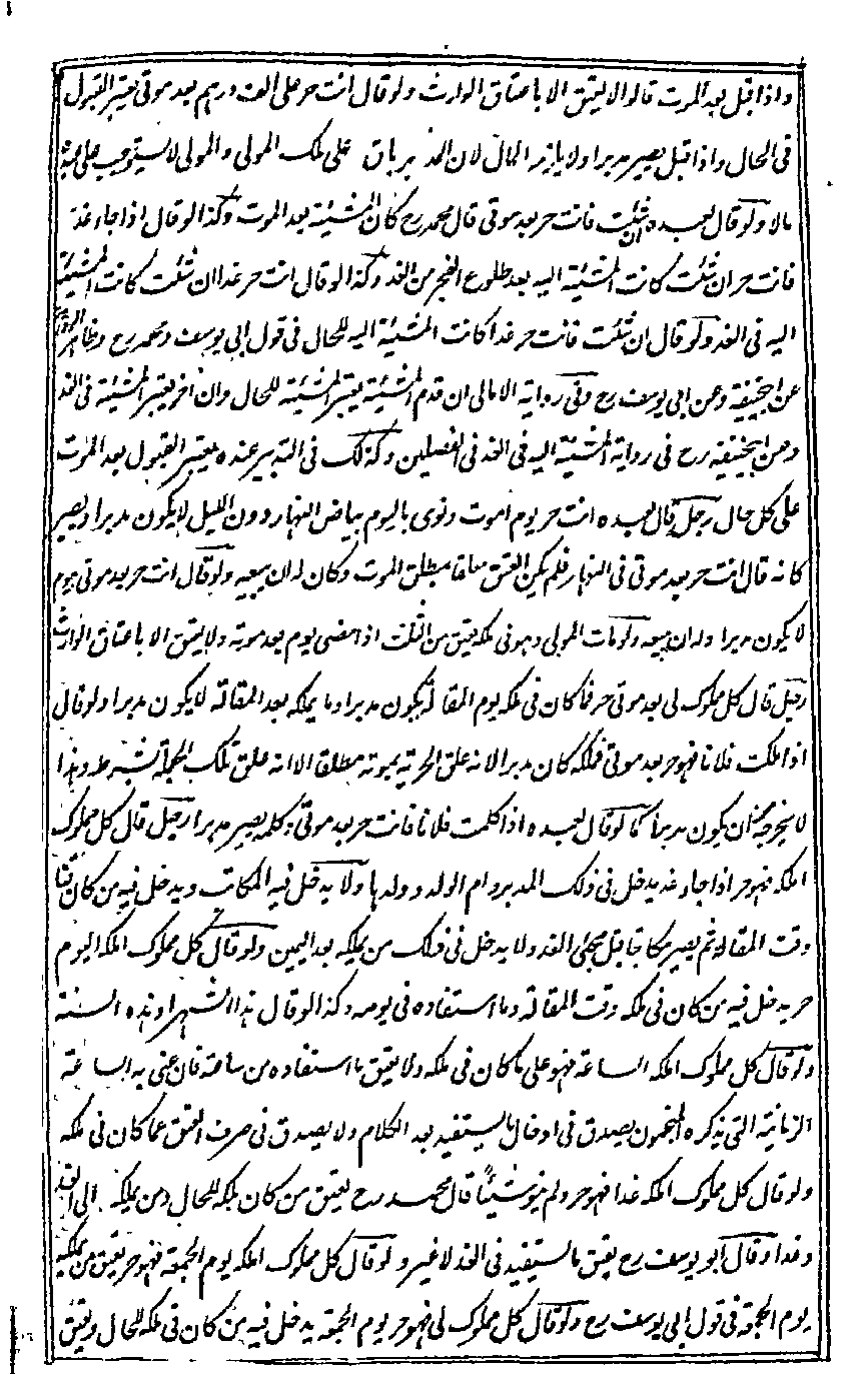 واذا قبل بعد الموت قالوا لا يعتق الا باعتاق الوارث ولو قال انت حر على الف درهم بعد موتى يعتبر القبول
فى الحال واذا قبل يصير مدبرا ولا يلزمه المال لان المدبر باق على ملك المولى والمولى لا يستوجب على عبده
مالا ولو قال لعبده ان شئت فانت حر بعد موتى قال محمد رح كان المشيئة بعد الموت وكذا لو قال اذا جاء غد
فانت حر ان شئت كانت المشيئة اليه بعد طلوع الفجر من الغد وكذا لو قال انت حر غدا ان شئت كانت المشيئة
اليه فى الغد ولو قال ان شئت فانت حر غدا كانت المشيئة اليه للحال فى قول ابى يوسف ومحمد رح وظاهر الرواية
عن ابحنيفة وعن ابى يوسف رح وفى رواية الامالى ان قدم المشيئة يعتبر المشيئة للحال وان اخر يعتبر المشيئة فى الغد
وعن ابحنيفه رح فى رواية المشيئة اليه فى الغد فى الفصلين وكذلك فى التدبير عنده يعتبر القبول بعد الموت
على كل حال رجل قال لعبده انت حر يوم اموت ونوى باليوم بياض النهار دون الليل لا يكون مدبرا ويصير
كانه قال انت حر بعد موتى فى النهار فلم يكن العتق معلقا بمطلق الموت وكان له ان يبيعه ولو قال انت حر بعد موتى بيوم
لا يكون مدبرا وله ان يبيعه ولو مات المولى وهو فى ملكه يعتق من الثلث اذا مضى يوم بعد موته ولا يعتق الا باعتاق الوارث
رجل قال كل مملوك لى بعد موتى حر فما كان فى ملكه يوم المقالة يكون مدبرا وما يملكه بعد المقالة لا يكون مدبرا ولو قال
اذا ملكت فلانا فهو حر بعد موتى فملكه كان مدبرا لانه علق الحرية بموته مطلقا الا انه علق تلك الجملة بشرط وهذا
لا يخرجه من ان يكون مدبرا كما لو قال لعبده اذا كلمت فلانا فانت حر بعد موتى فكلمه يصير مدبرا رجل قال كل مملوك
املكه فهو حر اذا جاء غد يدخل فى ذلك المدبر وام الولد وولدها ولا يدخل فيه المكاتب ويدخل فيه من كان قنا
وقت المقالة ثم يصير مكاتبا قبل مجئ الغد ولا يدخل فى ذلك من يملكه بعد اليمين ولو قال كل مملوك املكه اليوم
حر يدخل فيه من كان فى ملكه وقت المقالة وما استفاده فى يومه وكذا لو قال هذا الشهر او هذه السنة
ولو قال كل مملوك املكه الساعة فهو على ما كان فى ملكه ولا يعتق ما استفاده من ساعته فان عنى به الساعة
الزمانية التى يذكره المنجمون يصدق فى ادخال ما يستفيد بعد الكلام ولا يصدق فى صرف العتق عما كان فى ملكه
ولو قال كل مملوك املكه غدا فهو حر ولم ينو شيئا قال محمد رح يعتق من كان يملكه للحال ومن يملكه الى الغد
وغدا وقال ابو يوسف رح يعتق ما يستفيد فى الغد لا غير ولو قال كل مملوك املكه يوم الجمعة فهو حر يعتق من يملكه
يوم الجمعة فى قول ابى يوسف رح ولو قال كل مملوك لى فهو حر يوم الجمعة يدخل فيه من كان فى ملكه للحال ويعتق